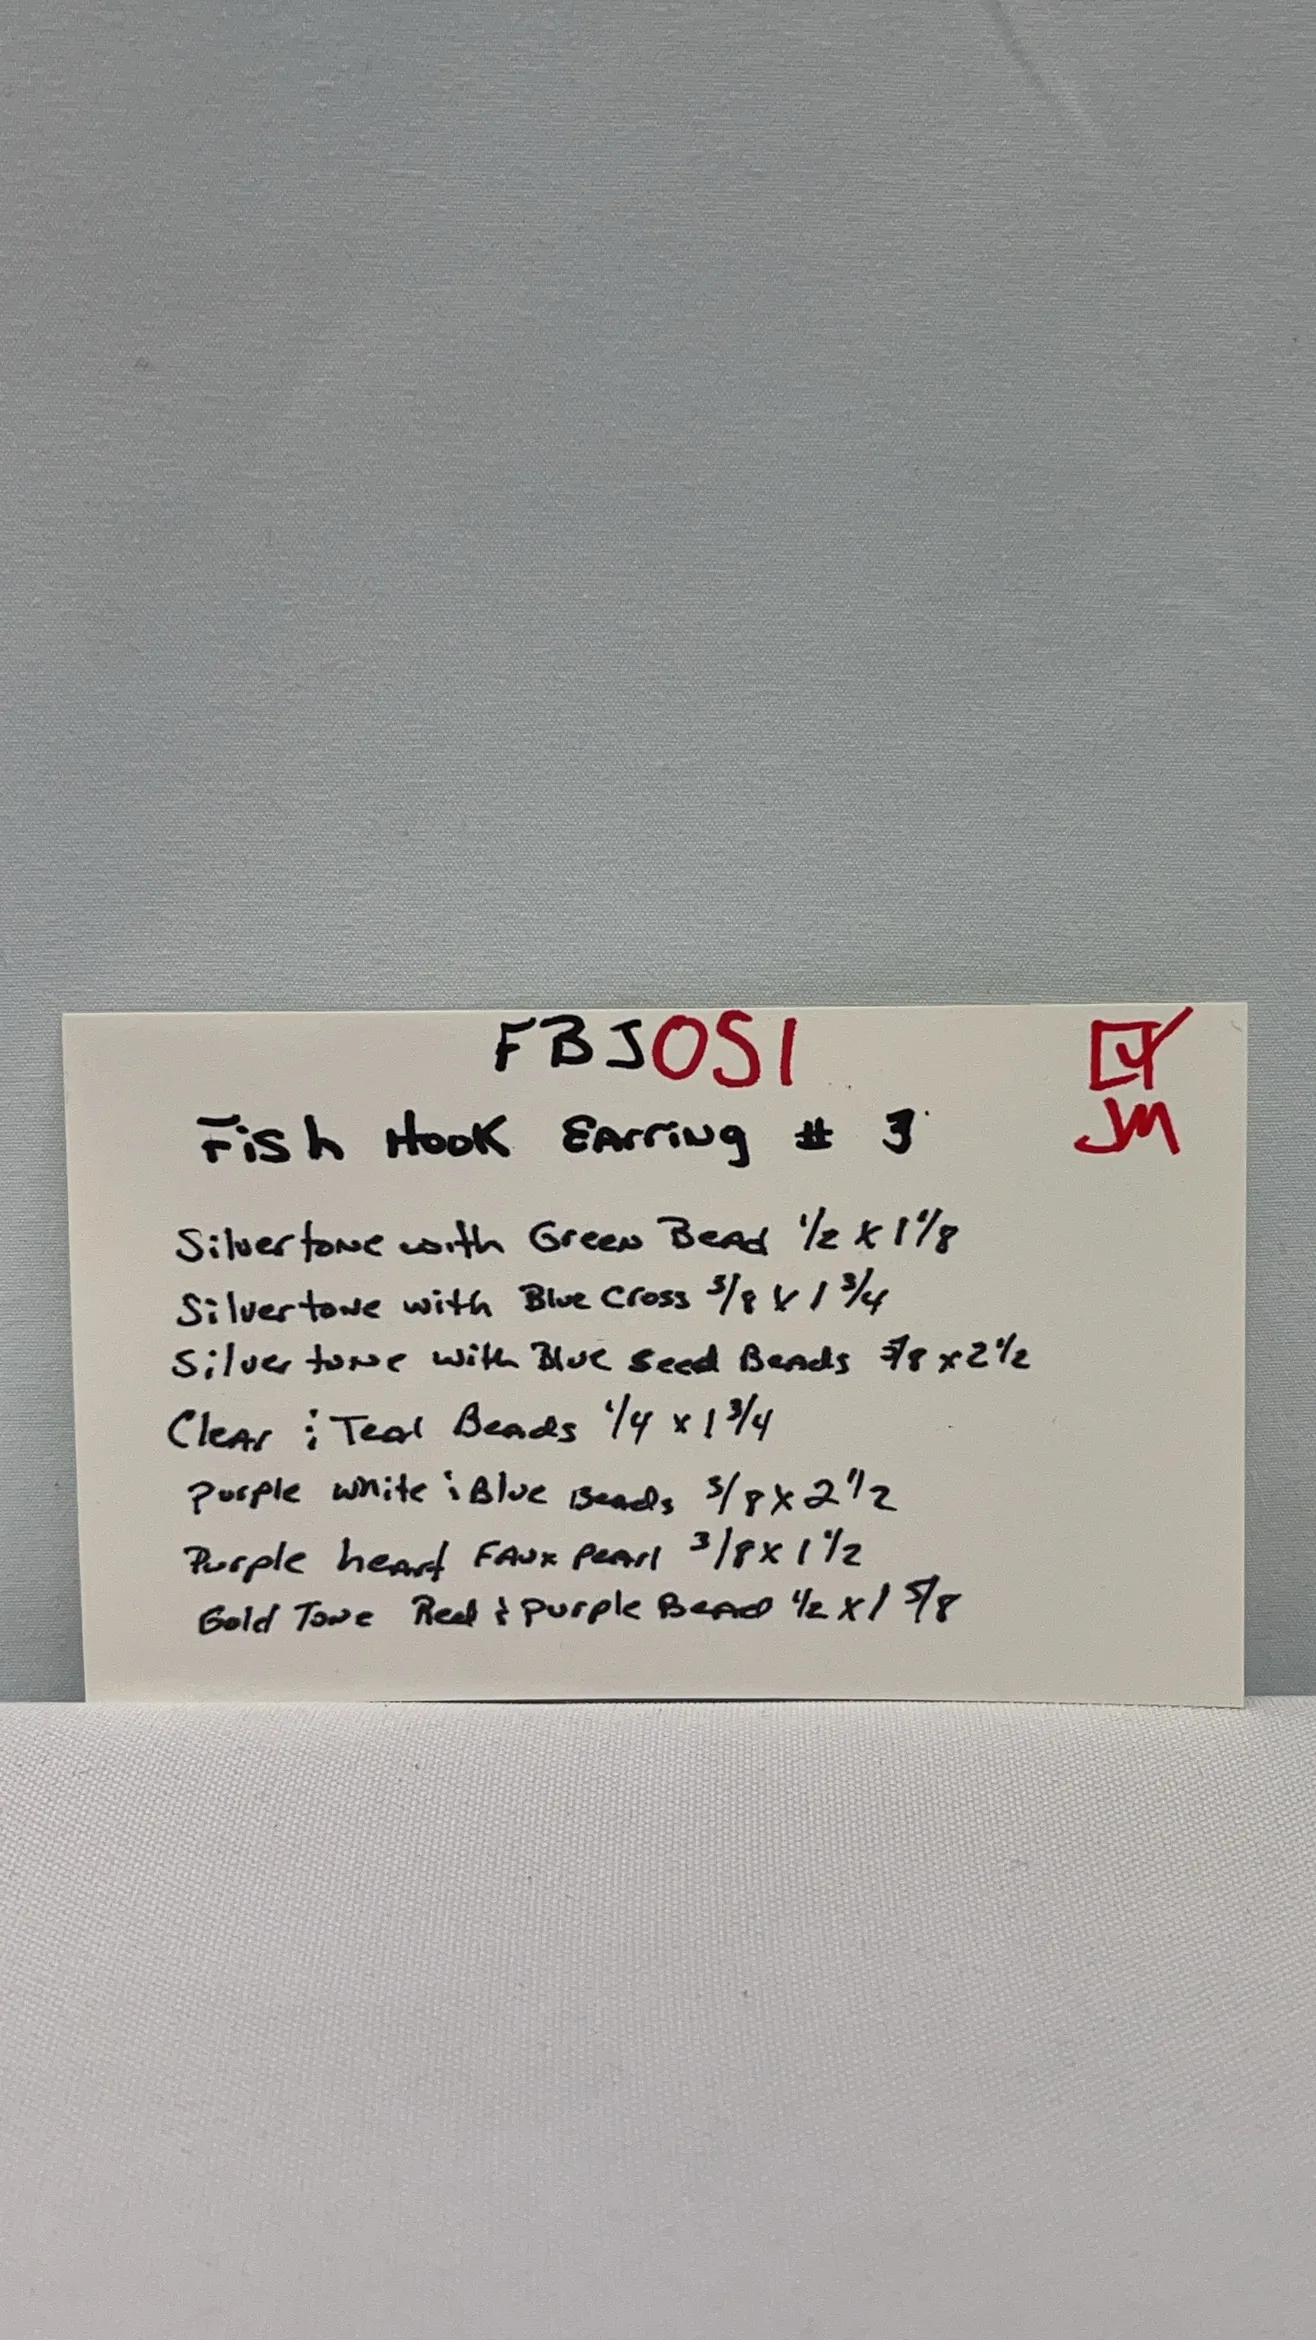 FBJ051
Fish Hook Earring # 3
Silvertone with Green Bead 1/2 x 1 1/8
Silvertone with Blue Cross 5/8 x 1 3/4
Silvertone with Blue Seed Beads /8 x 2 1/2
Clear & Teal Beads 1/4 x 1 3/4
Purple White & Blue Beads 5/8 x 2 1/2
Purple heart Faux Pearl 3/8 x 1 1/2
Gold Tone Red & Purple Bead 1/2 x 1 5/8
JM